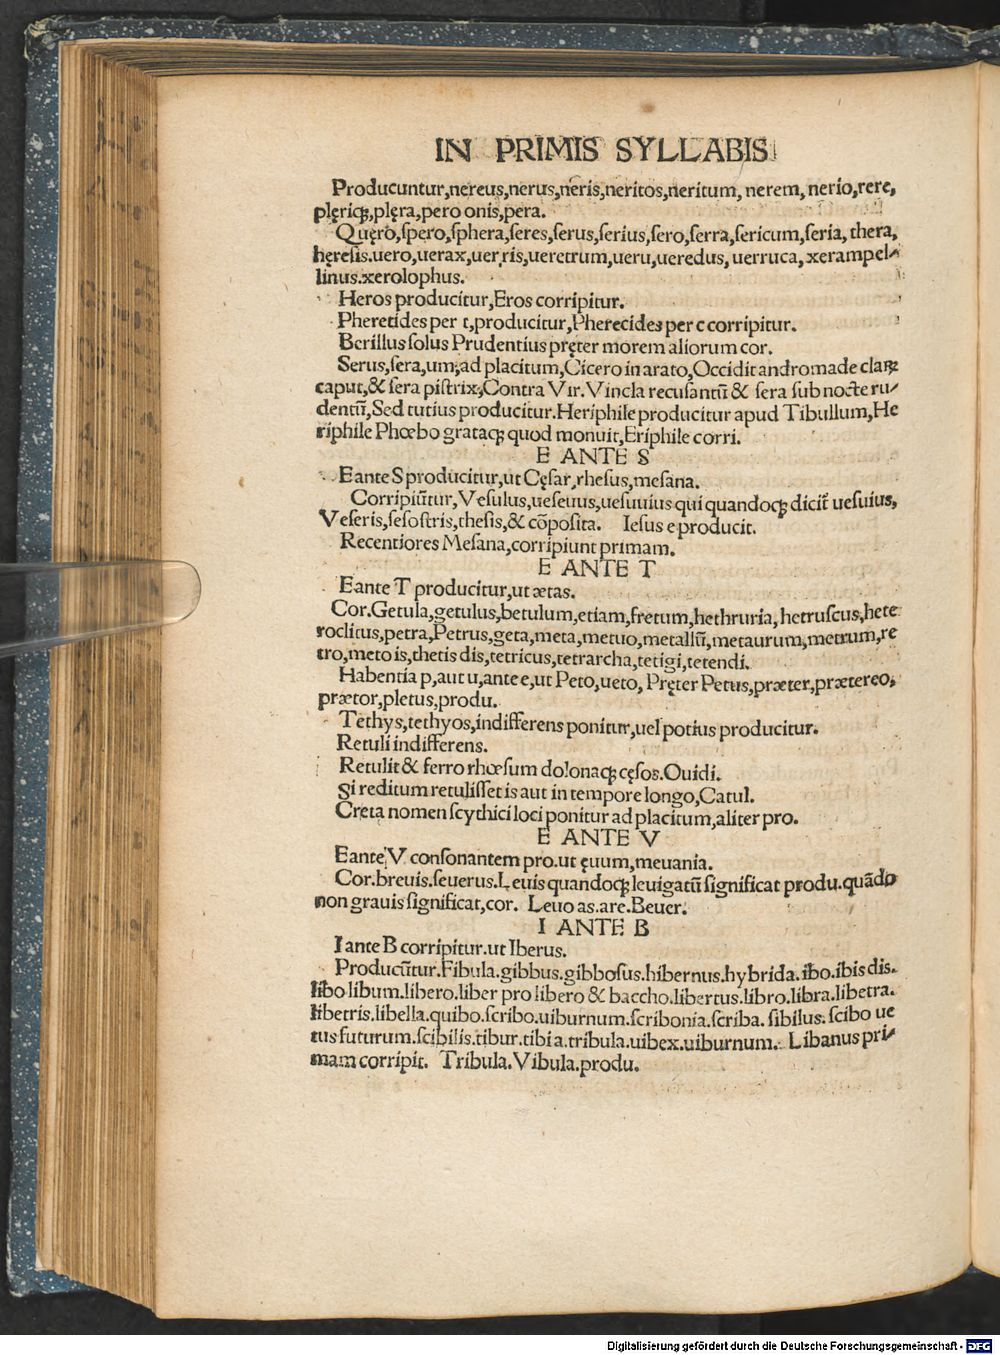 IN PRIMIS SYLLABIS
Producuntur,nereus,nerus,neris,neritos,neritum, nerem, nerio,rere,
plęriqꝫ,plęra,pero onis,pera.
Quęro,ſpero,ſphera,ſeres,ſerus,ſerius,ſero,ſerra,ſericum,ſeria, thera,
hęreſis.uero,uerax,uer,ris,ueretrum,ueru,ueredus, uerruca, xerampel⸗
linus.xerolophus.
Heros producitur,Eros corripitur.
Pheretides per t,producitur,Pherecides per c corripitur.
Berillus ſolus Prudentius pręter morem aliorum cor.
Serus,ſera,um,ad placitum,Cicero in arato,Occidit andromade claꝝ
caput,& ſera piſtrix,Contra Vir.Vincla recuſantū & ſera ſub nocte ru⸗
dentū,Sed tutius producitur.Heriphile producitur apud Tibullum,He
riphile Phœbo grataqꝫ quod monuit,Eriphile corri.
E ANTE S
E ante S producitur,ut Cęſar,rheſus,meſana.
Corripiūtur,Veſulus,ueſeuus,ueſuuius qui quandoqꝫ dicit᷑ ueſuius,
Veſeris,ſeſoſtris,theſis,& cōpoſita. Ieſus e producit.
Recentiores Meſana,corripiunt primam.
E ANTE T
E ante T producitur,ut ætas.
Cor.Getula,getulus,betulum,etiam,fretum,hethruria, hetruſcus,hete
roclitus,petra,Petrus,geta,meta,metuo,metallū,metaurum,metrum,re
tro,meto is,thetis dis,tetricus,tetrarcha,tetigi,tetendi.
Habentia p,aut u,ante e,ut Peto,ueto, Pręter Petus,præter,prætereo,
prætor,pletus,produ.
Tethys,tethyos,indifferens ponitur,uel potius producitur.
Retuli indifferens.
Retulit & ferro rhœſum dolonaqꝫ cęſos.Ouidi.
Si reditum retuliſſet is aut in tempore longo,Catul.
Creta nomen ſcythici loci ponitur ad placitum,aliter pro.
E ANTE V
E ante V conſonantem pro.ut ęuum,meuania.
Cor.breuis.ſeuerus.Leuis quandoqꝫ leuigatū ſignificat produ.quādo
non grauis ſignificat,cor. Leuo as.are.Beuer.
I ANTE B
I ante B corripitur.ut Iberus.
Producūtur.Fibula.gibbus.gibboſus.hibernus.hybrida.ibo.ibis dis.
libo libum.libero.liber pro libero & baccho.libertus.libro.libra.libetra.
libetris.libella.quibo.ſcribo.uiburnum.ſcribonia.ſcriba. ſibilus. ſcibo ue
tus futurum.ſcibilis.tibur.tibia.tribula.uibex.uiburnum. Libanus pri⸗
mam corripit. Tribula.Vibula.produ.
Digitalisierung gefördert durch die Deutsche Forschungsgemeinschaft - DFG